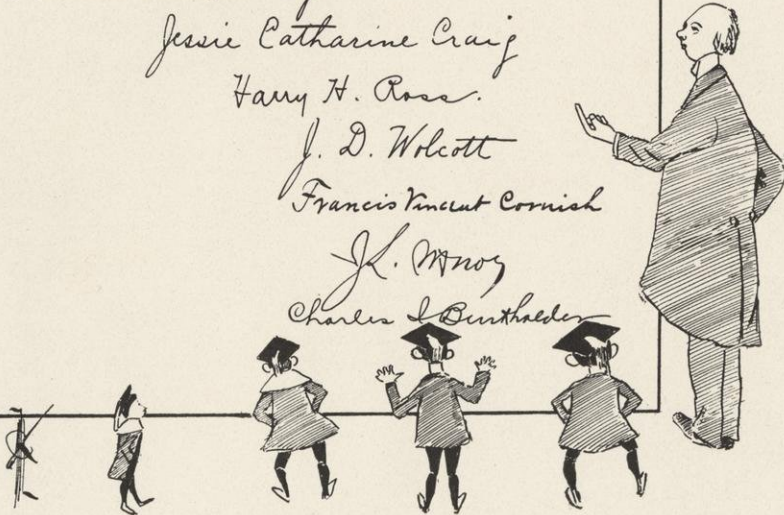 Jessie Catharine Craig
Harry H. Ross.
J. D. Wolcott
Francis Vincent Cornish
J. L.
Charles I Burkholder